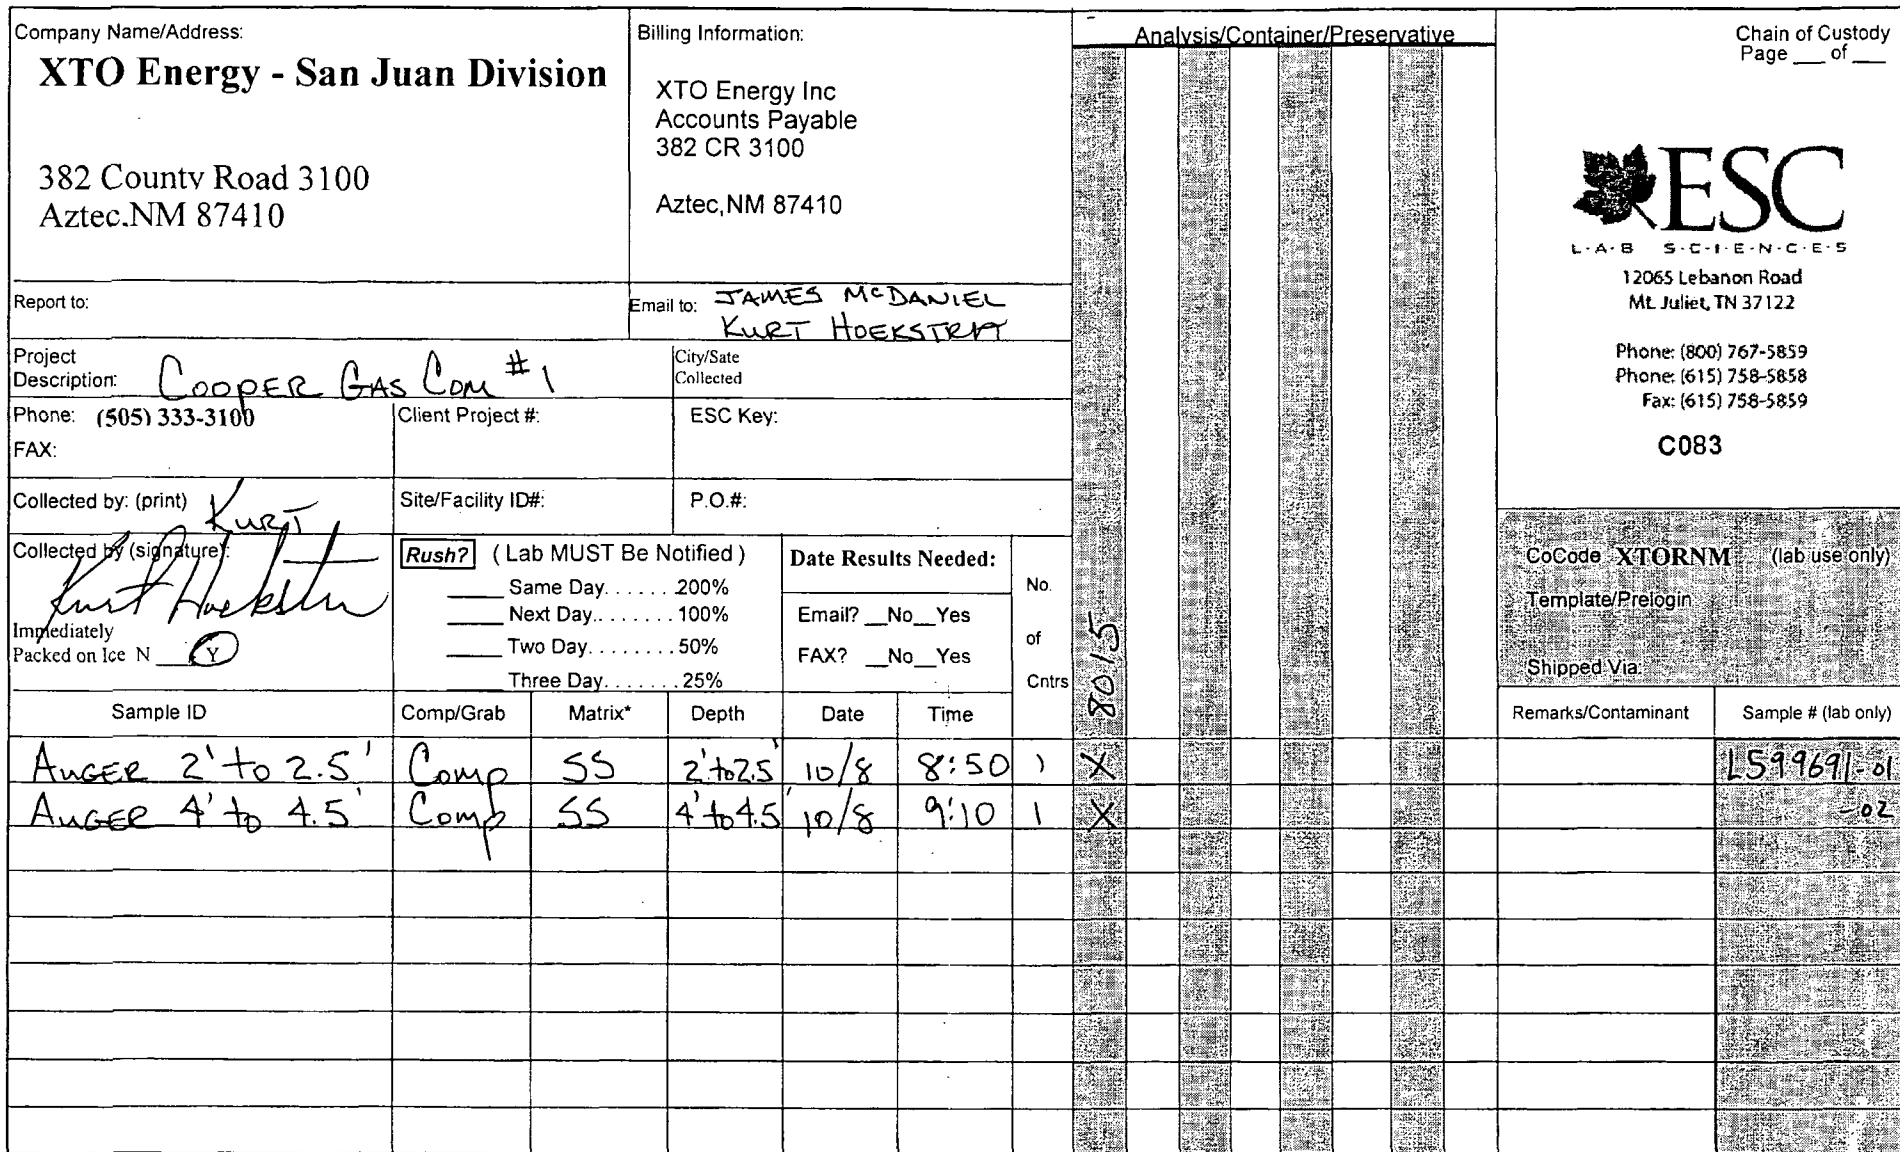 Company Name/Address:
XTO Energy - San Juan Division
382 County Road 3100
Aztec.NM 87410
Billing Information:
XTO Energy Inc
Accounts Payable
382 CR 3100
Aztec,NM 87410
Analysis/Container/Preservative
Chain of Custody
Page ___ of ___
ESC
L·A·B S·C·I·E·N·C·E·S
12065 Lebanon Road
Mt. Juliet, TN 37122
Phone: (800) 767-5859
Phone: (615) 758-5858
Fax: (615) 758-5859
C083
Report to:
Email to: JAMES McDANIEL
KURT HOEKSTRA
Project
Description: COOPER GAS COM #1
City/Sate
Collected
Phone: (505) 333-3100
FAX:
Client Project #:
ESC Key:
Collected by: (print) KURT
Site/Facility ID#:
P.O.#:
Collected by (signature):
Kurt Hoekstra
Immediately
Packed on Ice N ___ Y
Rush? ( Lab MUST Be Notified )
____ Same Day.......200%
____ Next Day........100%
____ Two Day........50%
Three Day.......25%
Date Results Needed:
Email? __No__Yes
FAX? __No__Yes
No.
of
Cntrs
8015
CoCode XTORNM (lab use only)
Template/Prelogin
Shipped Via:
Sample ID Comp/Grab Matrix* Depth Date Time Remarks/Contaminant Sample # (lab only)
AUGER 2' to 2.5' Comp SS 2' to 2.5' 10/8 8:50 1 X L599691-01
AUGER 4' to 4.5' Comp SS 4' to 4.5' 10/8 9:10 1 X -02